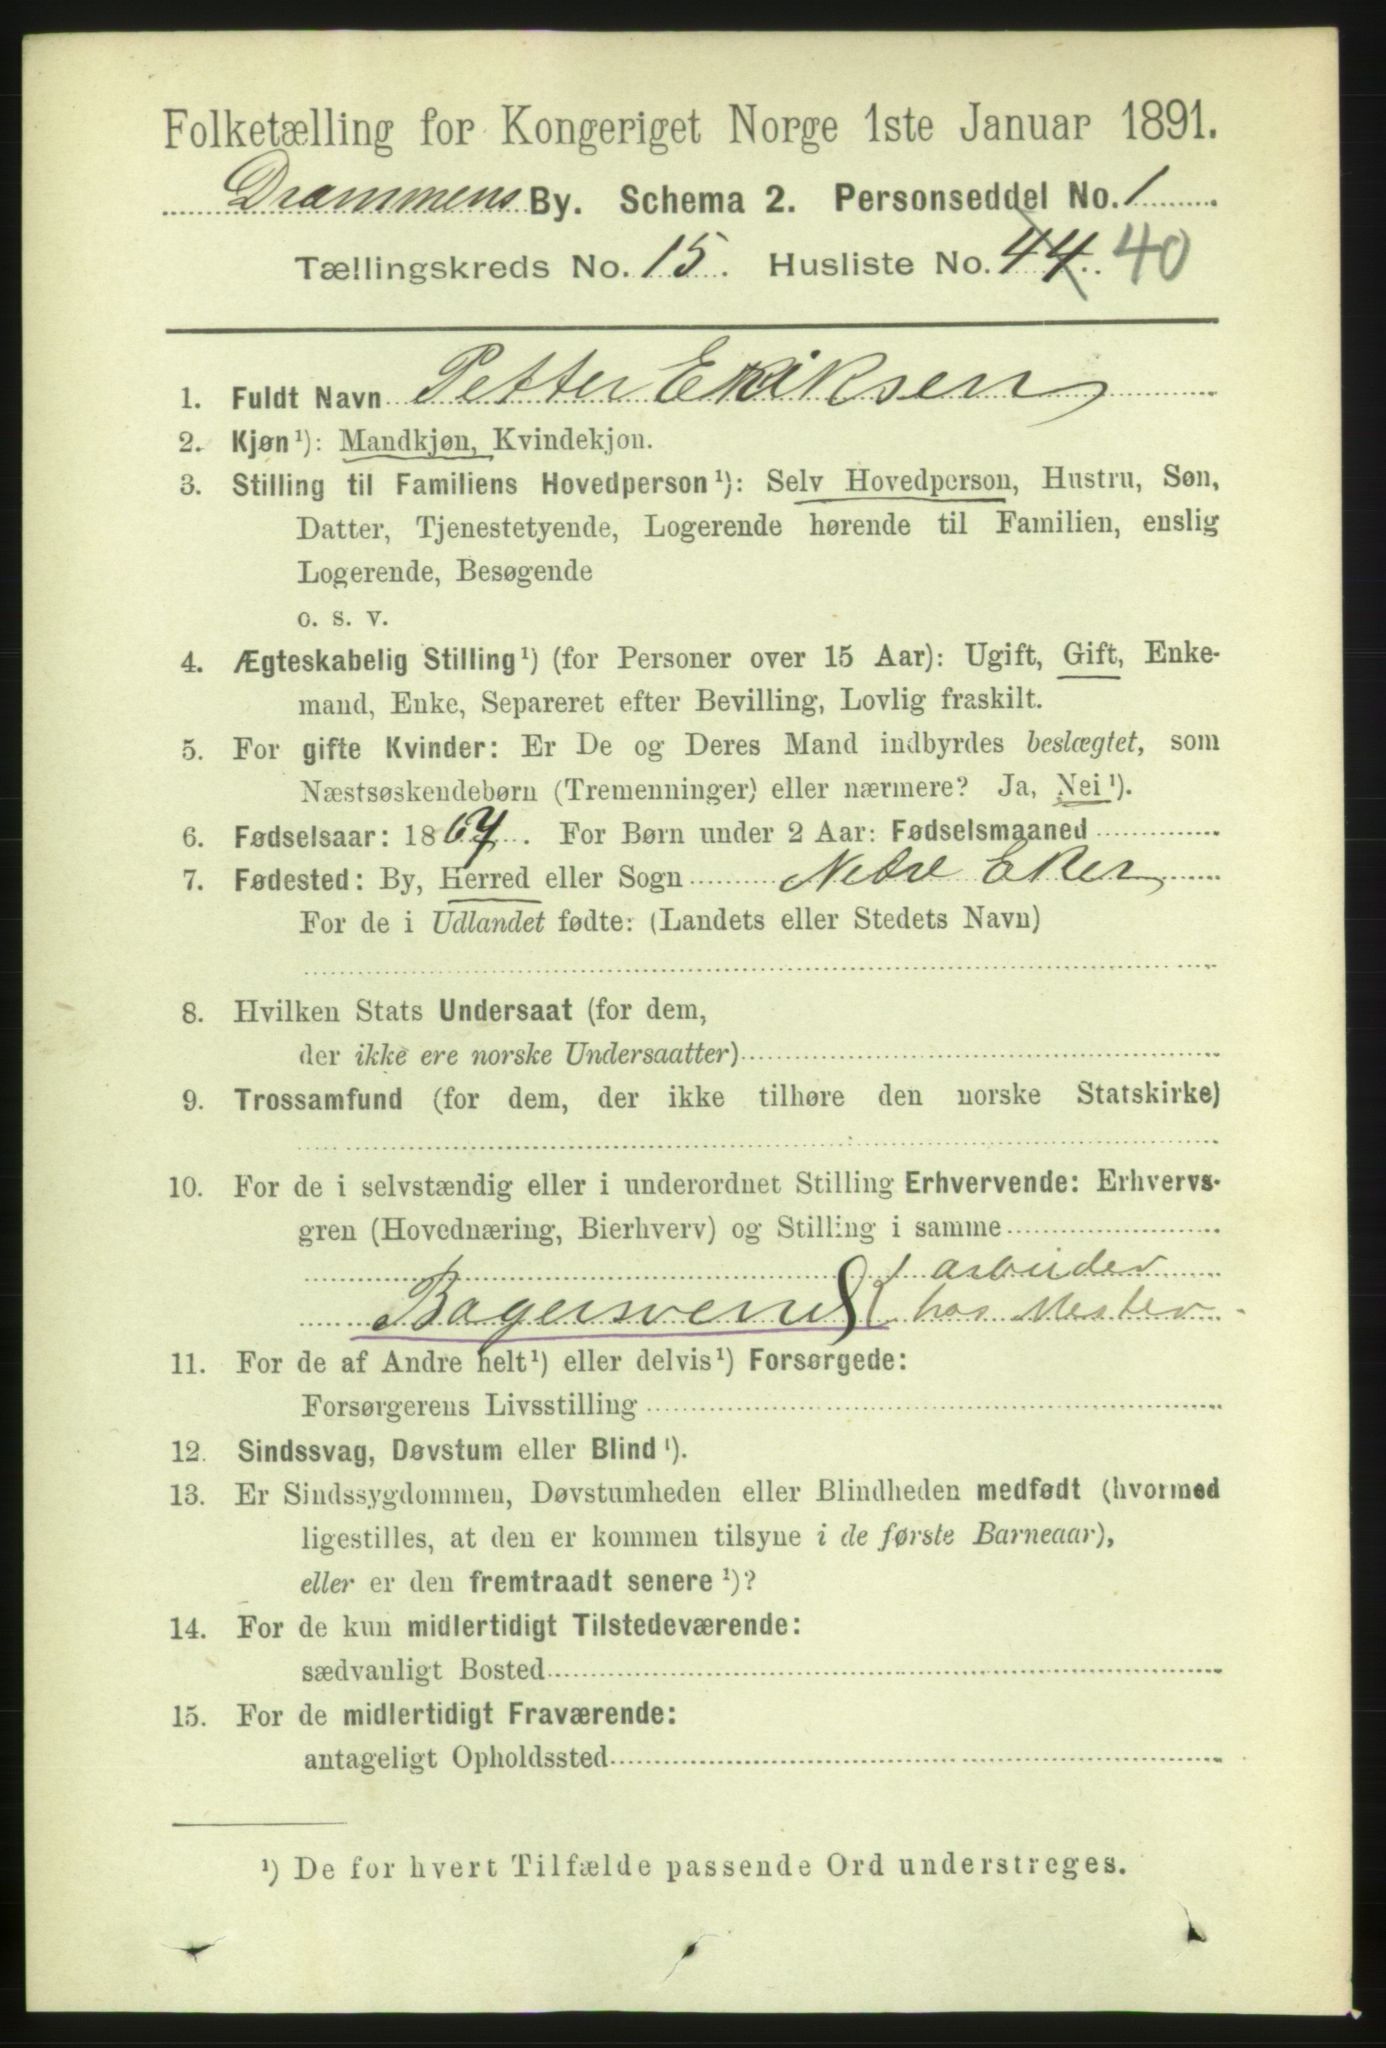 Folketælling for Kongeriget Norge 1ste Januar 1891.
Drammens By. Schema 2. Personseddel No. 1
Tællingskreds No. 15. Husliste No. 44. 40
1. Fuldt Navn Petter Eriksen
2. Kjøn¹): Mandkjøn, Kvindekjon.
3. Stilling til Familiens Hovedperson¹): Selv Hovedperson, Hustru, Søn,
Datter, Tjenestetyende, Logerende hørende til Familien, enslig
Logerende, Besøgende
o. s. v.
4. Ægteskabelig Stilling¹) (for Personer over 15 Aar): Ugift, Gift, Enke-
mand, Enke, Separeret efter Bevilling, Lovlig fraskilt.
5. For gifte Kvinder: Er De og Deres Mand indbyrdes beslægtet, som
Næstsøskendebørn (Tremenninger) eller nærmere? Ja, Nei¹).
6. Fødselsaar: 1867. For Børn under 2 Aar: Fødselsmaaned
7. Fødested: By, Herred eller Sogn Nedre Eker
For de i Udlandet fødte: (Landets eller Stedets Navn)
8. Hvilken Stats Undersaat (for dem,
der ikke ere norske Undersaatter)
9. Trossamfund (for dem, der ikke tilhøre den norske Statskirke)
10. For de i selvstændig eller i underordnet Stilling Erhvervende: Erhvervs-
gren (Hovednæring, Bierhverv) og Stilling i samme
arbeider
Bagersvend hos Mester
11. For de af Andre helt¹) eller delvis¹) Forsørgede:
Forsørgerens Livsstilling
12. Sindssvag, Døvstum eller Blind¹).
13. Er Sindssygdommen, Døvstumheden eller Blindheden medfødt (hvormed
ligestilles, at den er kommen tilsyne i de første Barneaar),
eller er den fremtraadt senere¹)?
14. For de kun midlertidigt Tilstedeværende:
sædvanligt Bosted
15. For de midlertidigt Fraværende:
antageligt Opholdssted
¹) De for hvert Tilfælde passende Ord understreges.